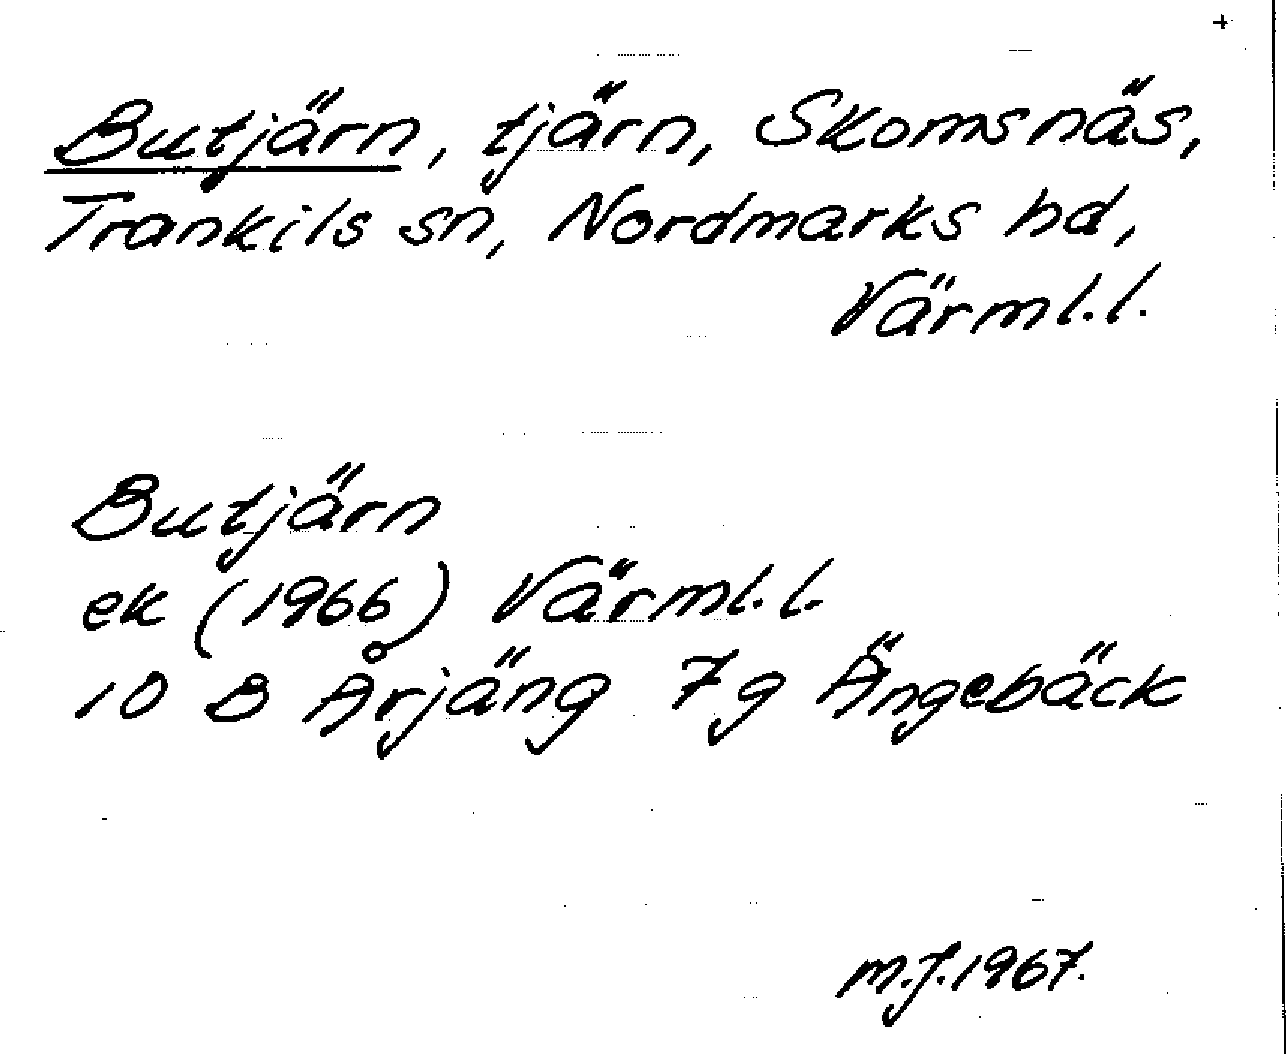 +
Butjärn, tjärn, Skomsnäs,
Trankils sn, Nordmarks hd,
Värml.l.
Butjärn
ek (1966) Värml.l.
10 B Årjäng 7g Ängebäck
M.J.1967.